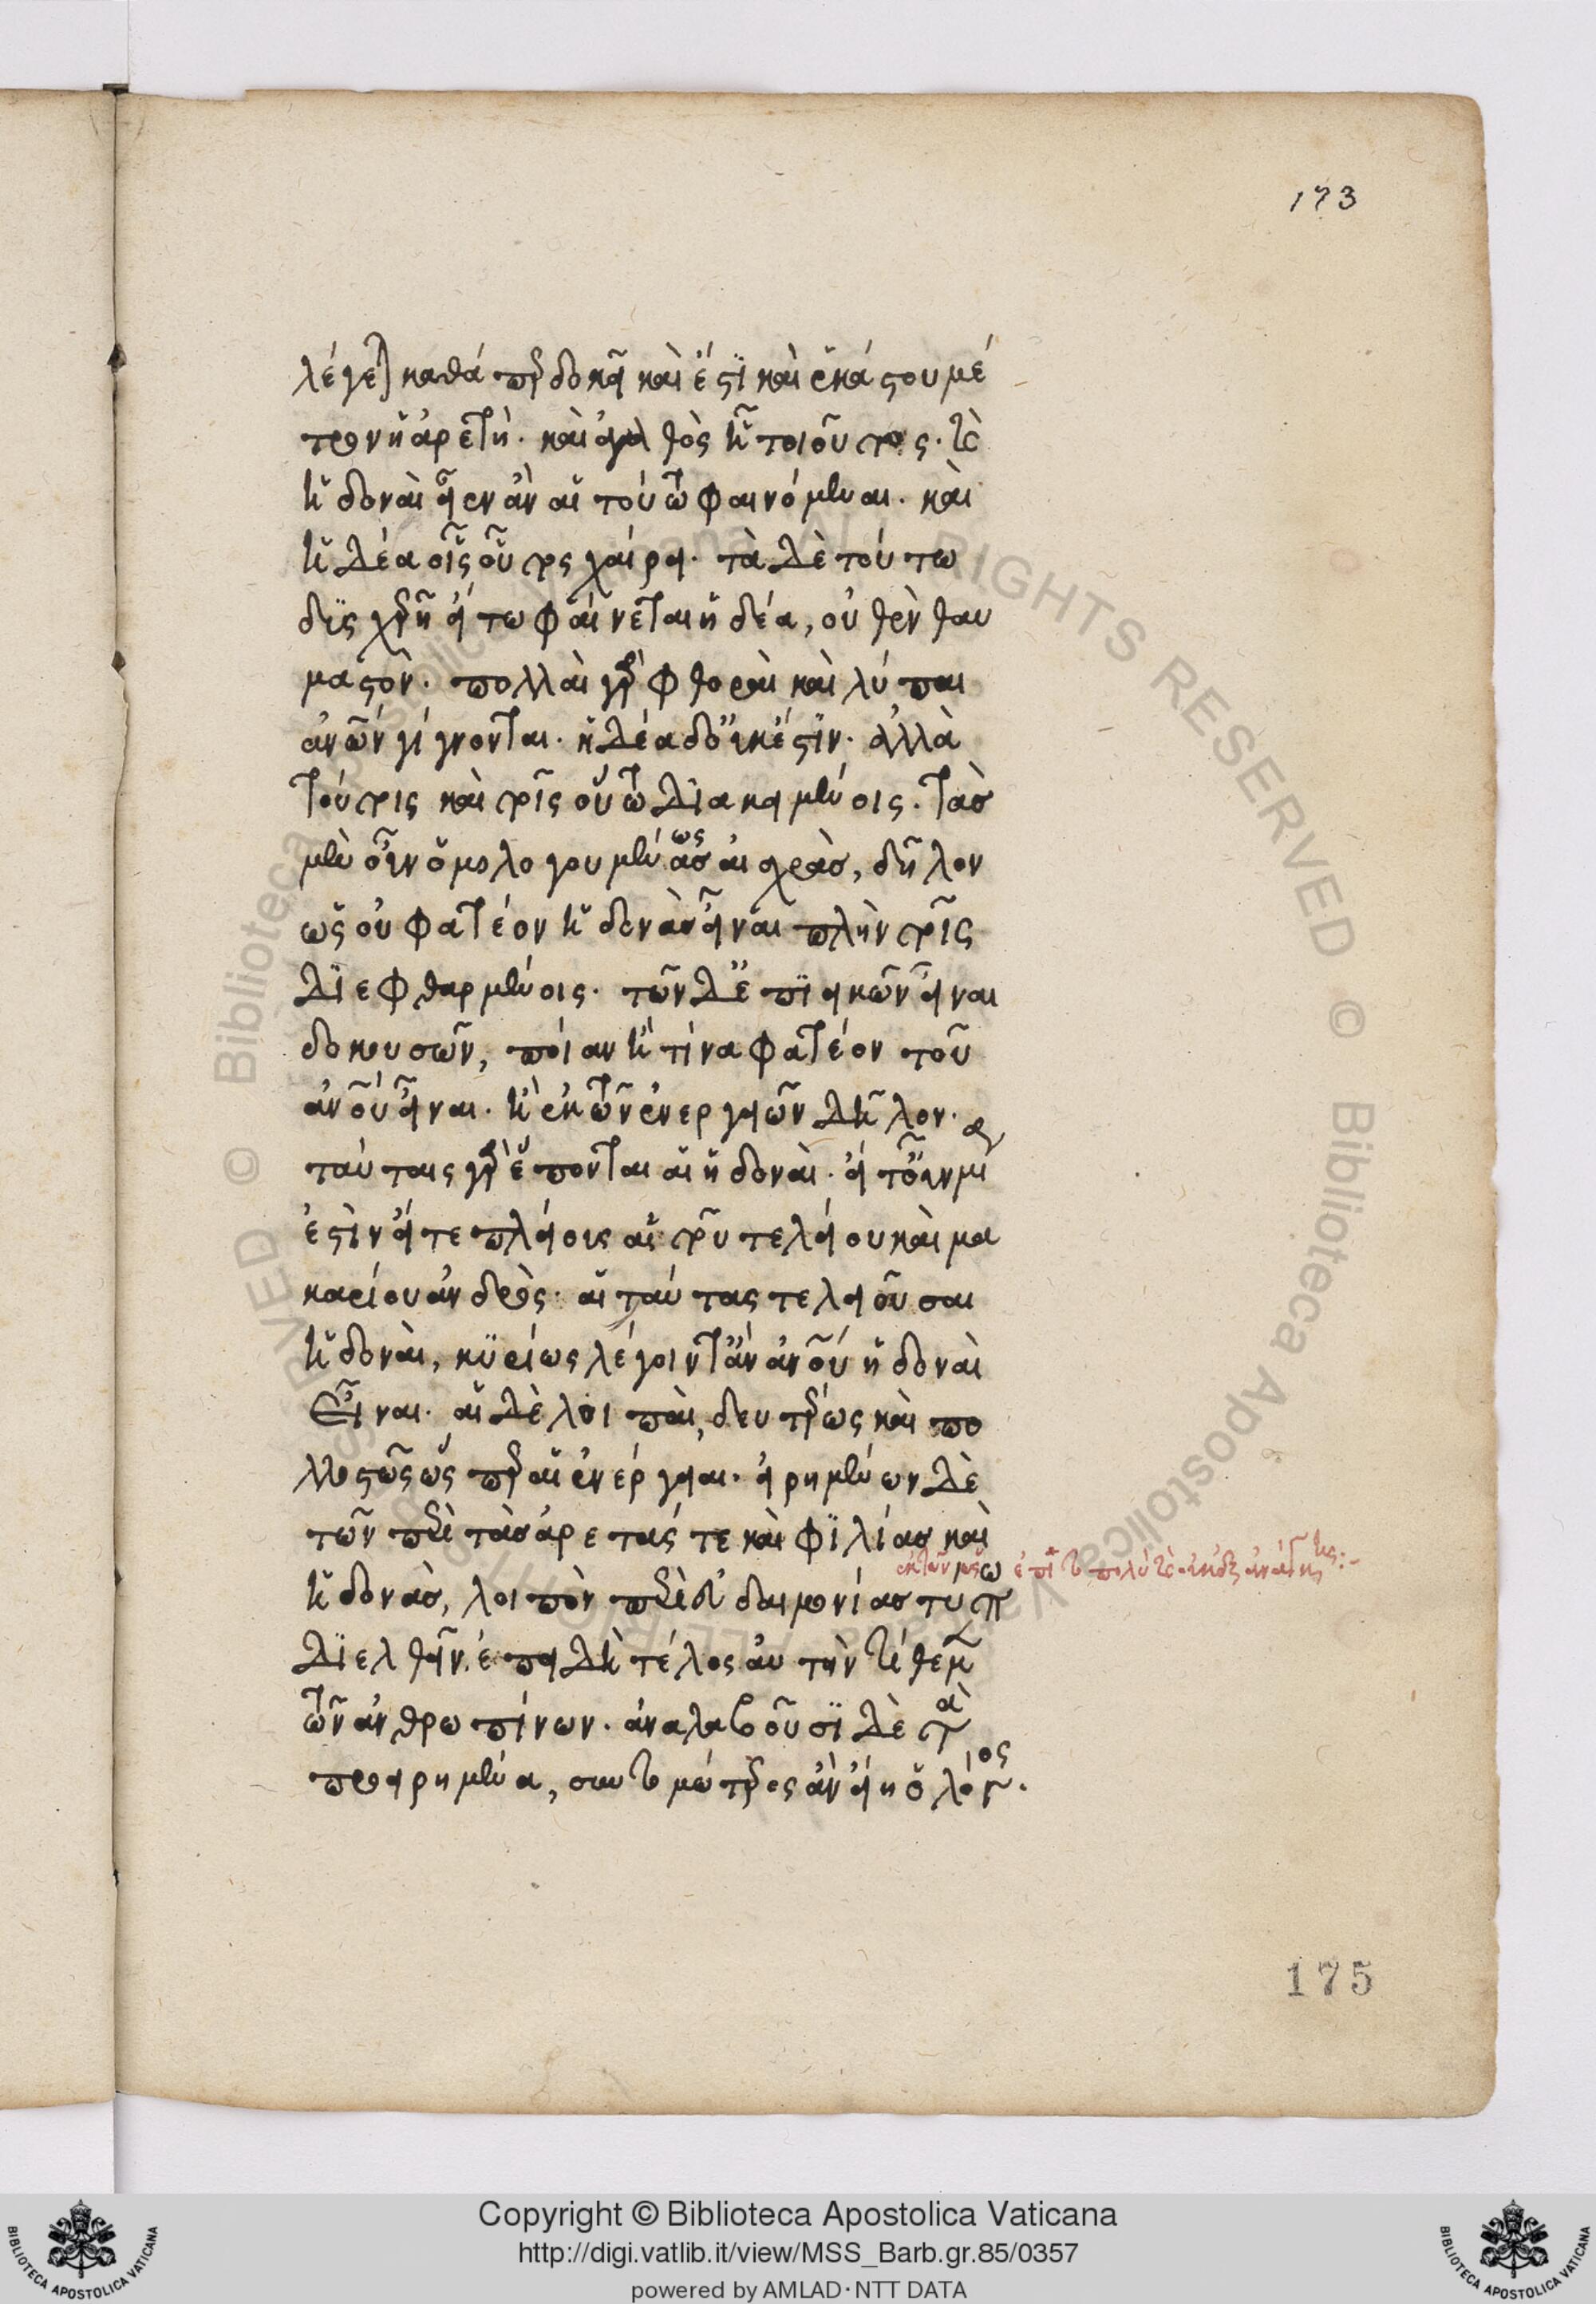 173
λέγεται καθάπερ δοκεῖ καὶ ἔστι καὶ ἑκάστου μέ
τρον ἡ ἀρετὴ. καὶ ἀγαθὸς ᾗ τοιοῦτος. καὶ
ἡδοναὶ εἶεν ἂν αἱ τούτω φαινόμεναι. καὶ
ἡδέα οἷς οὗτος χαίρει. τὰ δὲ τούτω
δυσχερῆ εἴ τω φαίνεται ἡδέα, οὐθὲν θαυ
μαστὸν. πολλαὶ γὰρ φθοραὶ καὶ λύπαι
ἀνθρώπων γίγνονται. ἡδέα δ' οὐκ ἔστιν. ἀλλὰ
τούτοις καὶ τοῖς οὕτω διακειμένοις. τὰς
μὲν οὖν ὁμολογουμένως αἰσχρὰς, δῆλον
ὡς οὐ φατέον ἡδονὰς εἶναι πλὴν τοῖς
διεφθαρμένοις. τῶν δ' ἐπιεικῶν εἶναι
δοκουσῶν, ποίαν ἢ τίνα φατέον τοῦ
ἀνθρώπου εἶναι. ἢ ἐκ τῶν ἐνεργειῶν δῆλον.
ταύταις γὰρ ἕπονται αἱ ἡδοναὶ. εἴτ' οὖν μία
ἐστὶν εἴτε πλείους αἱ τοῦ τελείου καὶ μα
καρίου ἀνδρὸς. αἱ ταύτας τελειοῦσαι
ἡδοναὶ, κυρίως λέγοιντ' ἂν ἀνθρώπου ἡδοναὶ
εἶναι. αἱ δὲ λοιπαὶ, δευτέρως καὶ πο
λλοστῶς ὥσπερ αἱ ἐνέργειαι. εἰρημένων δὲ
τῶν περὶ τὰς ἀρετάς τε καὶ φιλίας καὶ
ἡδονὰς, λοιπὸν περὶ εὐδαιμονίας τύπω
διελθεῖν. ἐπειδὴ τέλος αὐτὴν τίθεμεν
τῶν ἀνθρωπίνων. ἀναλαβοῦσι δὲ τὰ
προειρημένα, συντομώτερος ἂν εἴη ὁ λόγος.
175
Copyright © Biblioteca Apostolica Vaticana
http://digi.vatlib.it/view/MSS_Barb.gr.85/0357
powered by AMLAD·NTT DATA
BIBLIOTECA APOSTOLICA VATICANA
BIBLIOTECA APOSTOLICA VATICANA